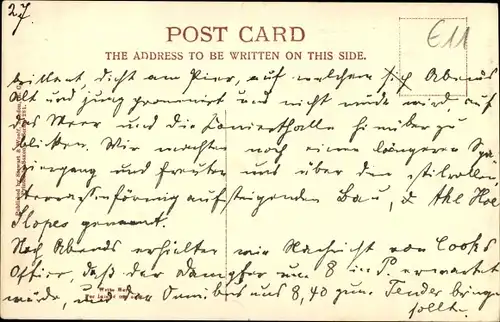 27.
POST CARD
THE ADDRESS TO BE WRITTEN ON THIS SIDE.
E11
brillant dicht am Pier, auf welchem sich Abends
Alt und jung promenirt und nicht müde wird auf
das Meer und die Konzerthalle hinüber zu
blicken. Wir machten noch einen längeren Spa
ziergang und freuten uns über den stilvollen
terrassenförmig aufsteigenden Bau, d. the Hoe
Slopes genannt.
Noch Abends erhielten wir Nachricht von Cooks
Office, daß der Dampfer um 8 in P. erwartet
würde, und der Omnibus uns 8,40 zum Tender bringen
sollte.